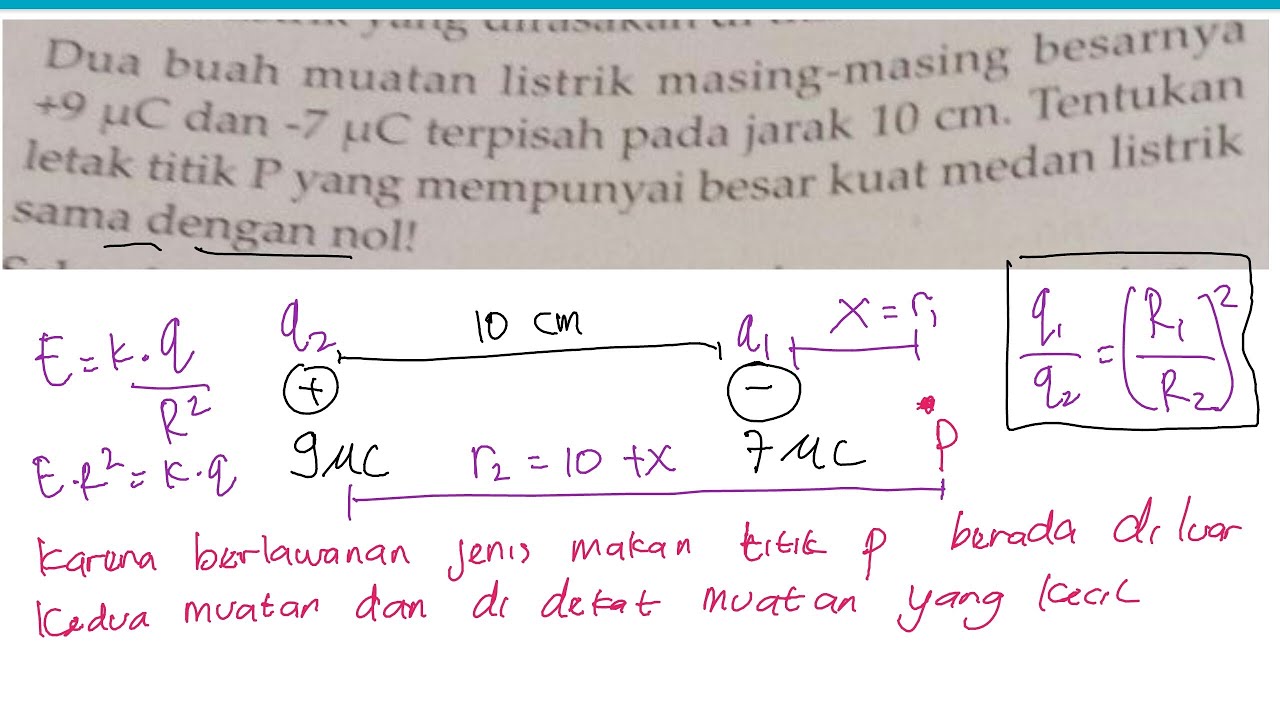 yang dirasakan di
Dua buah muatan listrik masing-masing besarnya
+9 μC dan -7 μC terpisah pada jarak 10 cm. Tentukan
letak titik P yang mempunyai besar kuat medan listrik
sama dengan nol!
E = k.q/R²
E.R² = k.q
q₂
10 cm
q₁
x = r₁
q₁/q₂ = (R₁/R₂)²
+
−
9 μC
r₂ = 10 + x
7 μC
P
karena berlawanan jenis makan titik p berada di luar
kedua muatan dan di dekat muatan yang kecil